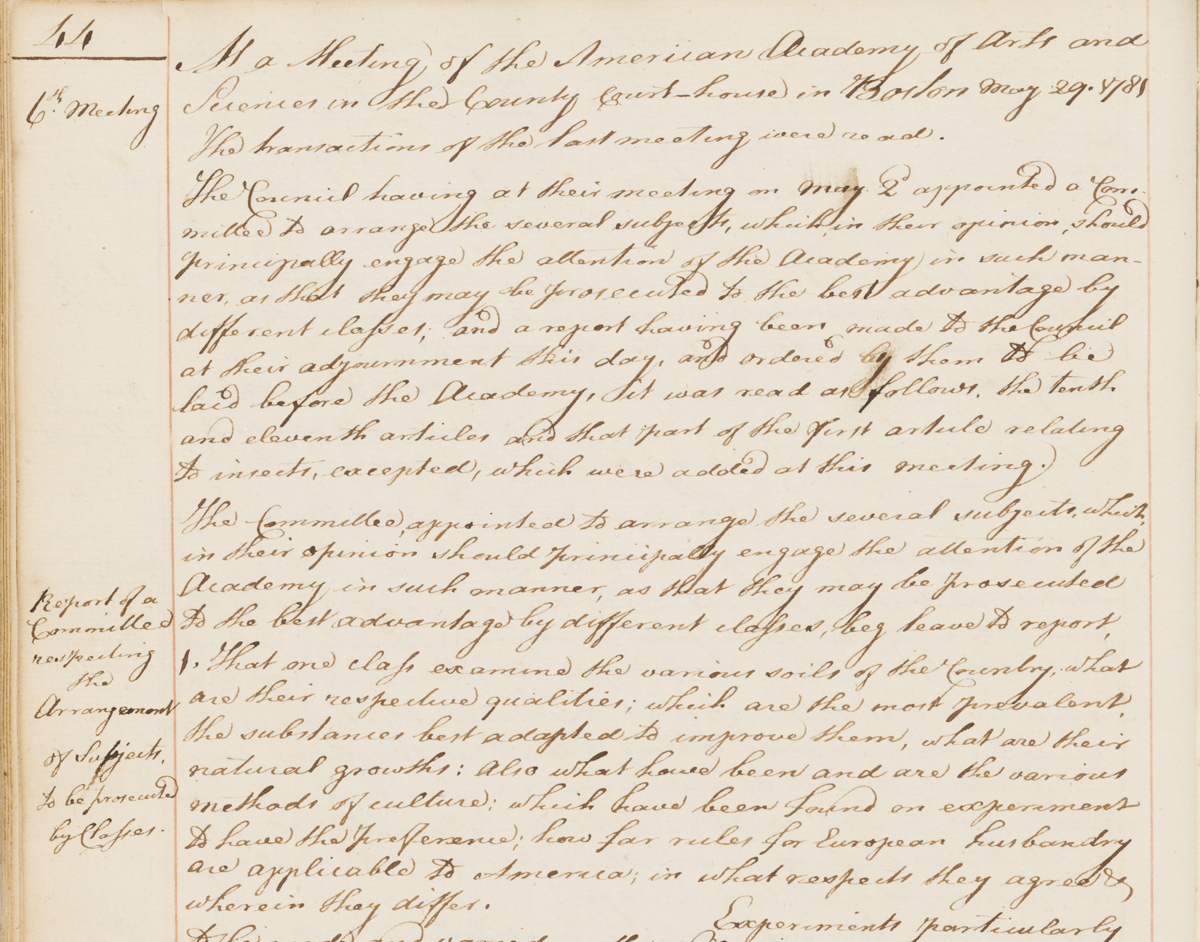 44
6th Meeting
At a Meeting of the American Academy of Arts and
Sciences in the County Court-house in Boston May 29. 1781
The transactions of the last meeting were read.
The Council having at their meeting on May 2d appointed a Com-
mittee to arrange the several subjects, which, in their opinion, should
principally engage the attention of the Academy, in such man-
ner, as that they may be prosecuted to the best advantage by
different classes; and a report having been made to the Council
at their adjournment this day, and ordered by them to be
laid before the Academy, it was read as follows. the tenth
and eleventh articles and that part of the first article relating
to insects, excepted, which were added at this meeting.)
The Committee, appointed to arrange the several subjects, which,
in their opinion should principally engage the attention of the
Academy, in such manner, as that they may be prosecuted
to the best advantage by different classes, beg leave to report,
Report of a
Committee
respecting
the
Arrangement
of Subjects,
to be prosecuted
by Classes.
1. That one class examine the various soils of the Country, what
are their respective qualities; which are the most prevalent,
the substances best adapted to improve them, what are their
natural growths: Also what have been and are the various
methods of culture; which have been found on experiment
to have the preference; how far rules for European husbandry
are applicable to America; in what respects they agree, &
wherein they differ.
Experiments particularly